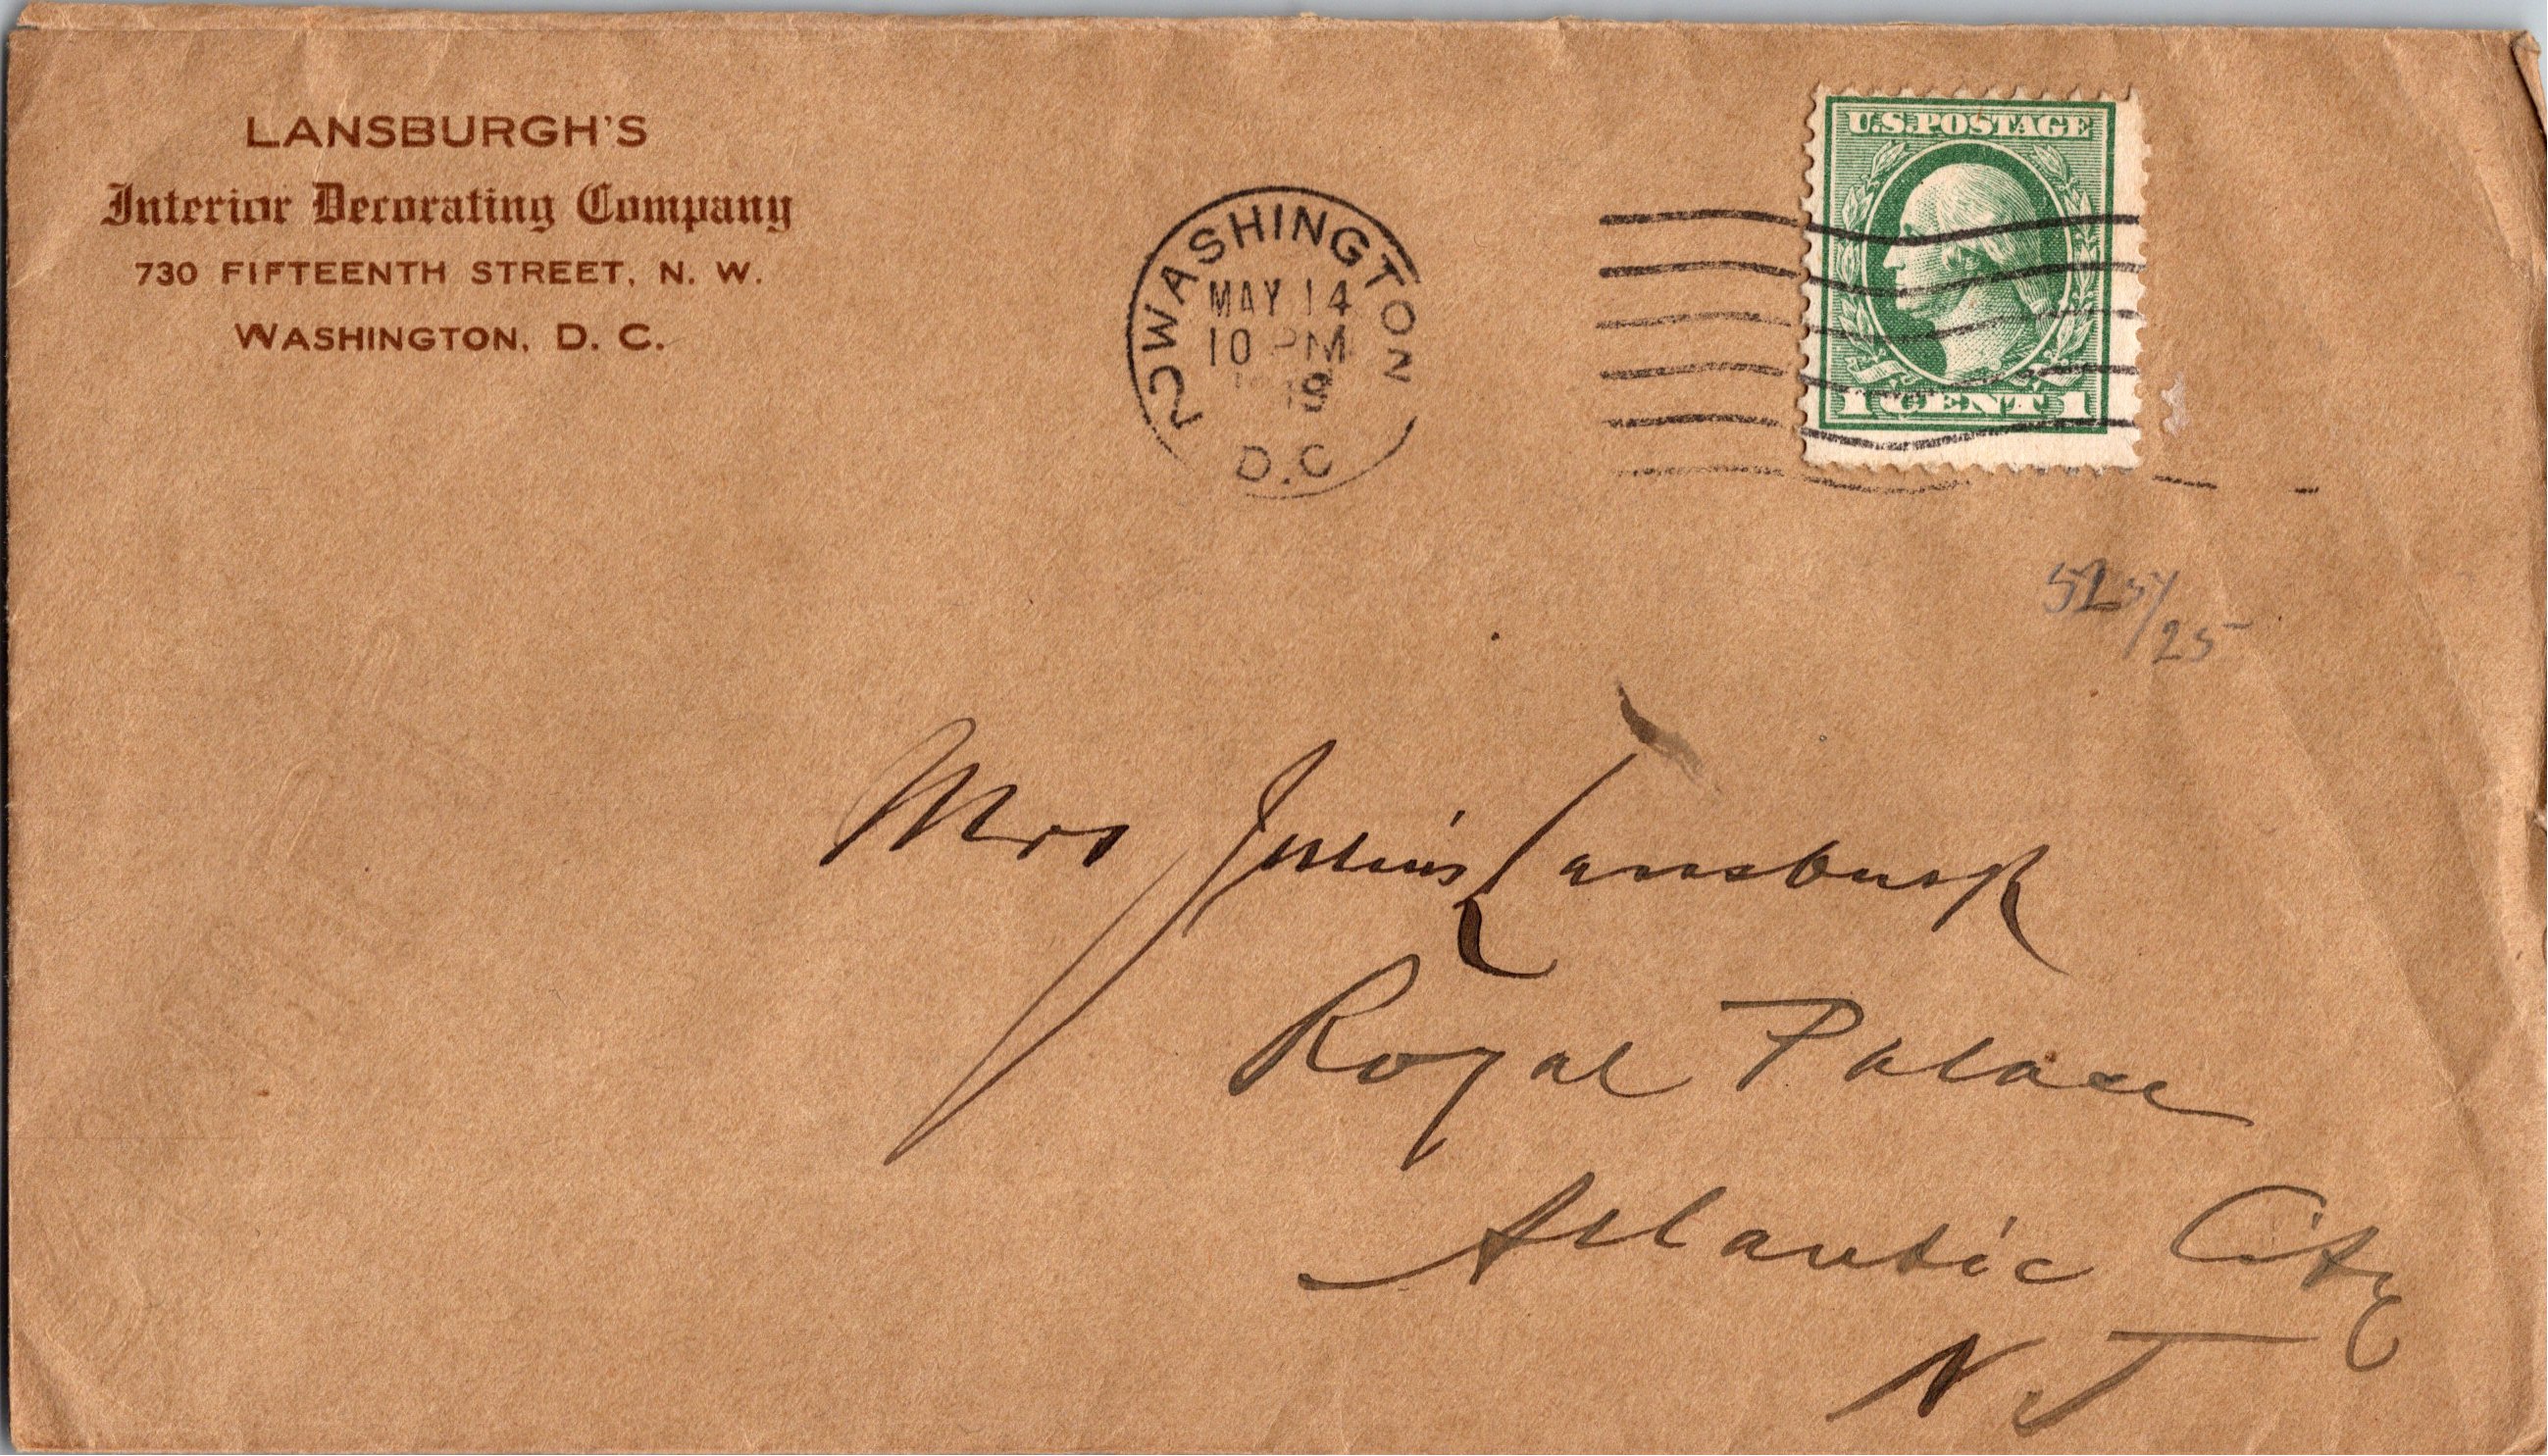 LANSBURGH'S
Interior Decorating Company
730 FIFTEENTH STREET, N. W.
WASHINGTON, D. C.
WASHINGTON
MAY 14
10 PM
19
D.C
U.S.POSTAGE
1 CENT 1
525/25
Mrs Julius Lansburgh
Royal Palace
Atlantic City
N J